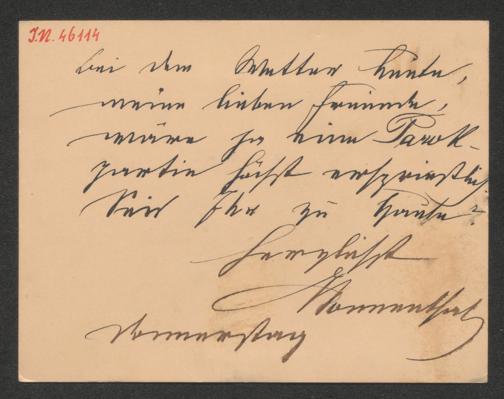 I.N. 46114
bei dem Wetter heute,
meine lieben Freunde,
wäre ja eine Tarok-
partie höchst ersprießlich.
Seid Ihr zu Hause?
Herzlichst
Sonnenthal
Donnerstag